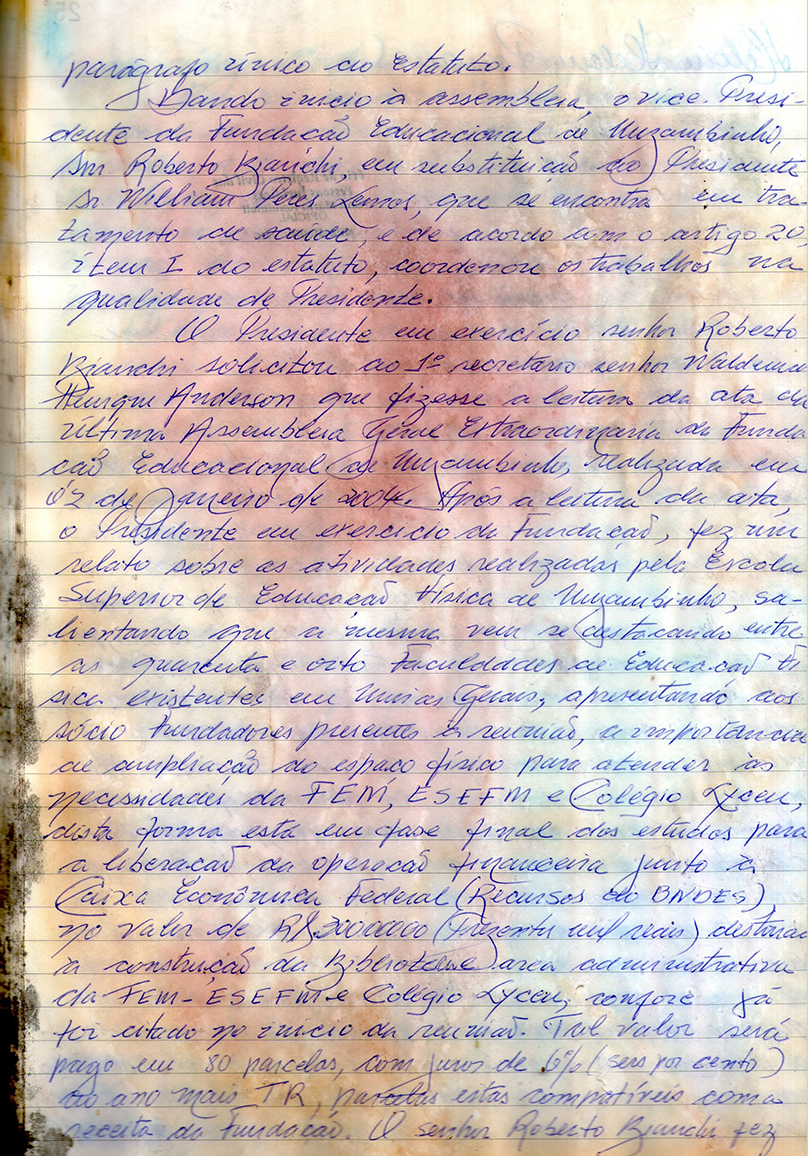 parágrafo único do Estatuto.
Dando início à assembleia, o vice-Presi-
dente da Fundação Educacional de Muzambinho,
Snr Roberto Bianchi, em substituição do Presidente
Sr William Peres Lemos, que se encontra em tra-
tamento de saúde, e de acordo com o artigo 20,
ítem I do estatuto, coordenou os trabalhos na
qualidade de Presidente.
O Presidente em exercício senhor Roberto
Bianchi solicitou ao 1º secretário senhor Waldemar
Henrique Anderson que fizesse a leitura da ata da
última Assembleia Geral Extraordinária da Funda
ção Educacional de Muzambinho, realizada em
02 de Janeiro de 2004. Após a leitura da ata,
o Presidente em exercício da Fundação, fez um
relato sobre as atividades realizadas pela Escola
Superior de Educação Física de Muzambinho, sa-
lientando que a mesma vem se destacando entre
as quarenta e oito Faculdades de Educação Fí
sica existentes em Minas Gerais, apresentando aos
sócio Fundadores presentes à reunião, a importância
de ampliação do espaço físico para atender às
necessidades da FEM, ESEFM e Colégio Lyceu,
desta forma está em fase final dos estudos para
a liberação da operação financeira junto à
Caixa Econômica Federal (Recursos do BNDES),
no valor de R$ 30000000 (Trezentos mil reais) destinado
à construção da Biblioteca e área administrativa
da FEM-ESEFM e Colégio Lyceu, confore já
foi citado no início da reunião. Tal valor será
pago em 80 parcelas, com juros de 6% (seis por cento)
ao ano mais TR, parcelas estas compatíveis com a
receita da Fundação. O senhor Roberto Bianchi fez